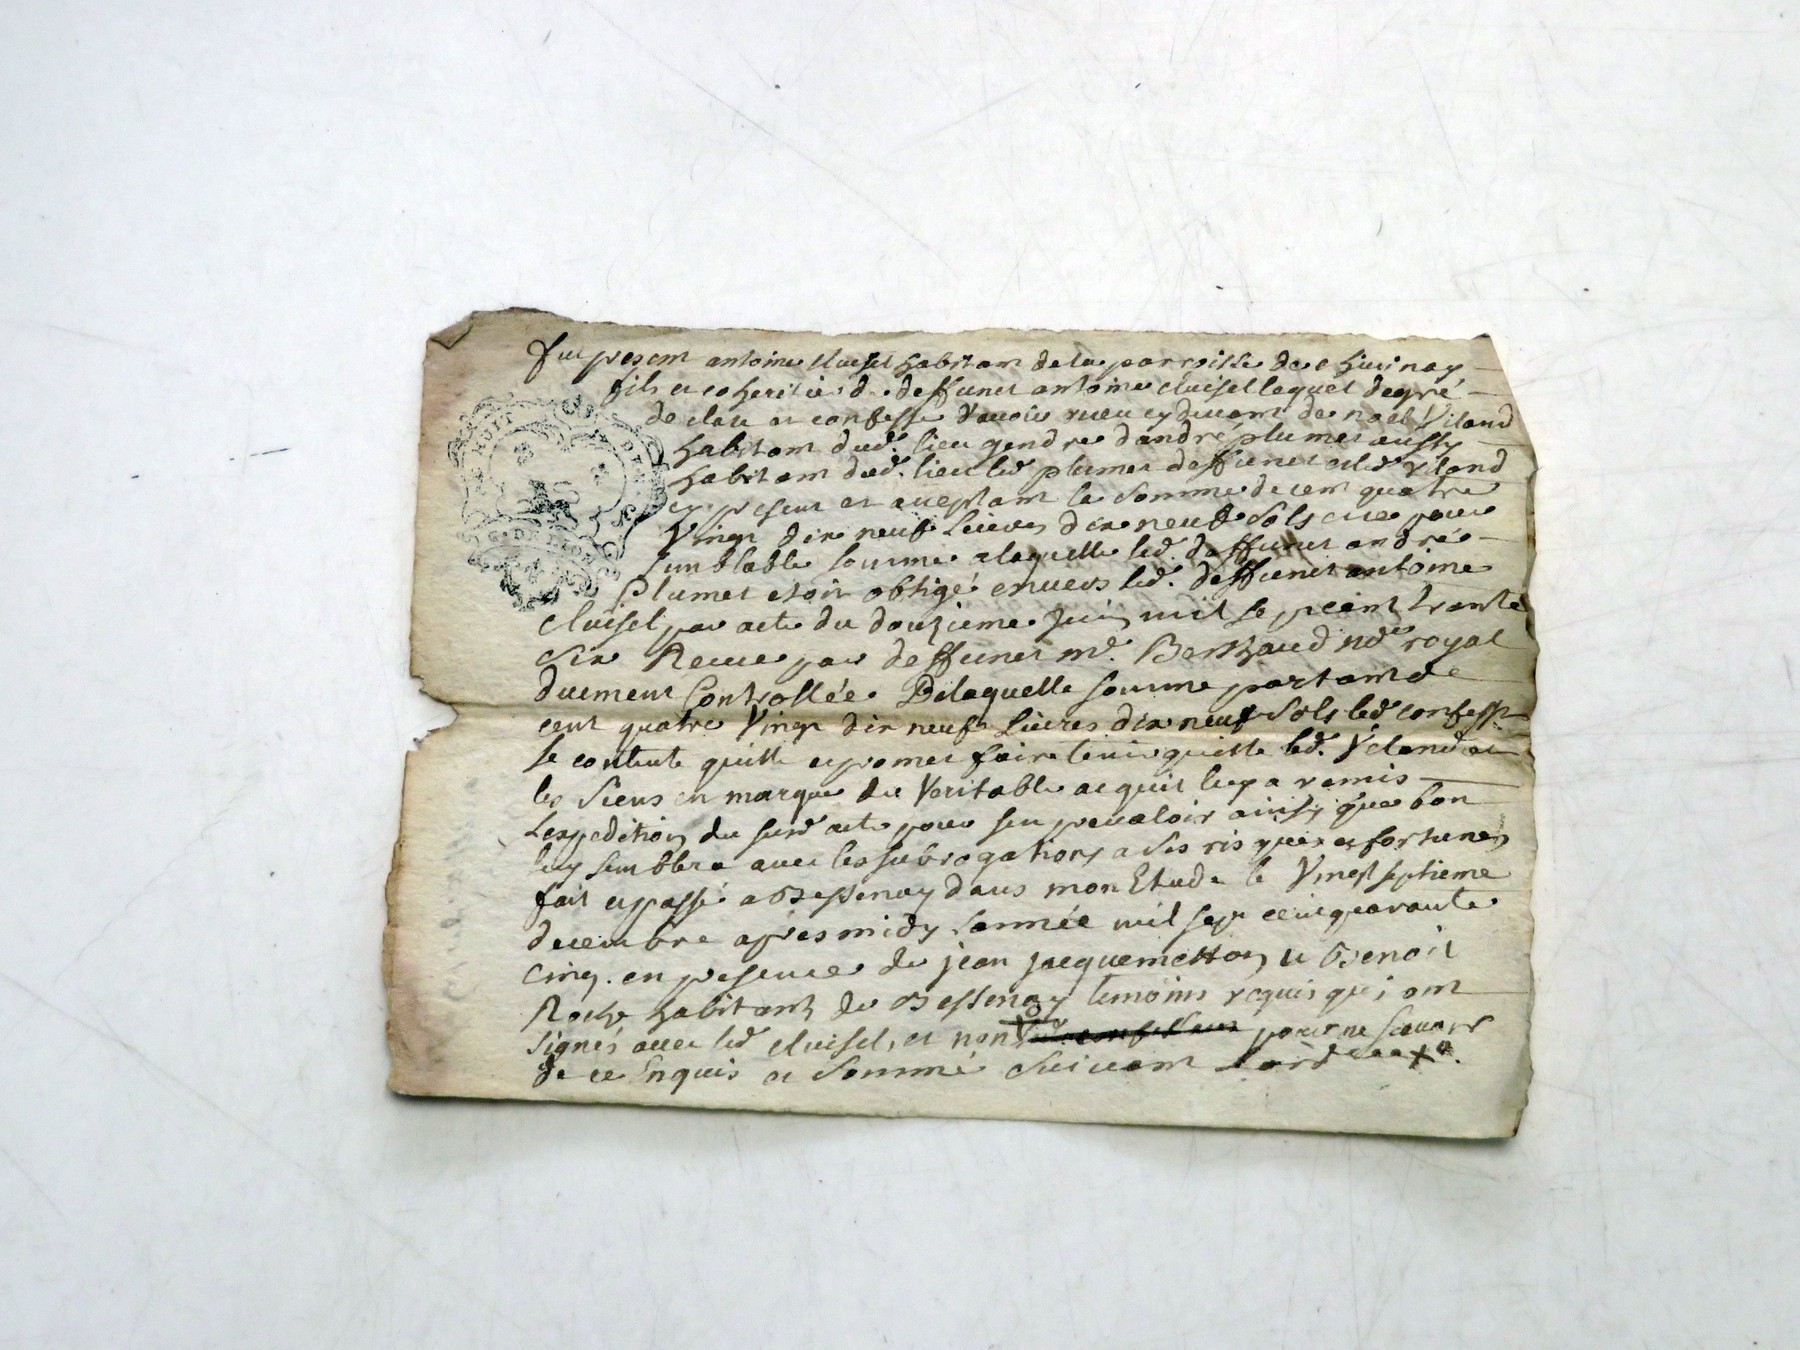 fut present antoine cluisel habitant de la parroisse de chivinay
fils et coheritier de deffunct antoine cluisel lequel de gré
declare et confesse d'avoir receu cy devant de noel Viland
habitant dud. lieu gendre d'andré plumet aussy
habitant dud. lieu led. plumet deffunct et led. viland
cy present et acceptant la somme de cent quatre
Vingt dix neuf Livres dix neuf sols et ce pour
semblable somme a laquelle led. deffunct andré
Plumet etoit obligé envers led. deffunct antoine
Cluisel par acte du douzieme juin mil se ptcent trente
six Receue par deffunct me. Berthaud nore royal
duement Controllée. De laquelle somme partant de
cent quatre Vingt dix neuf Livres dix neuf sols led. confess
se contente quitte et promet faire tenir quitte led. Viland et
les siens en marque du Veritable acquit luy a remis
l'expedition du susd. acte pour s'en prevaloir ainsy que bon
luy semblera avec les subrogations a ses risques et fortunes
fait et passé a Bessenay dans mon Etude le Vingt septieme
decembre apres midy l'année mil sept cent quarante
cinq. en presence de jean jacquemetton et Benoit
Roche habitants de Bessenay temoins requis qui ont
signés avec led. cluisel, et non pour ne scavoir
de ce Enquis et sommé suivant l'ord
HUIT DEN
G. DE LION